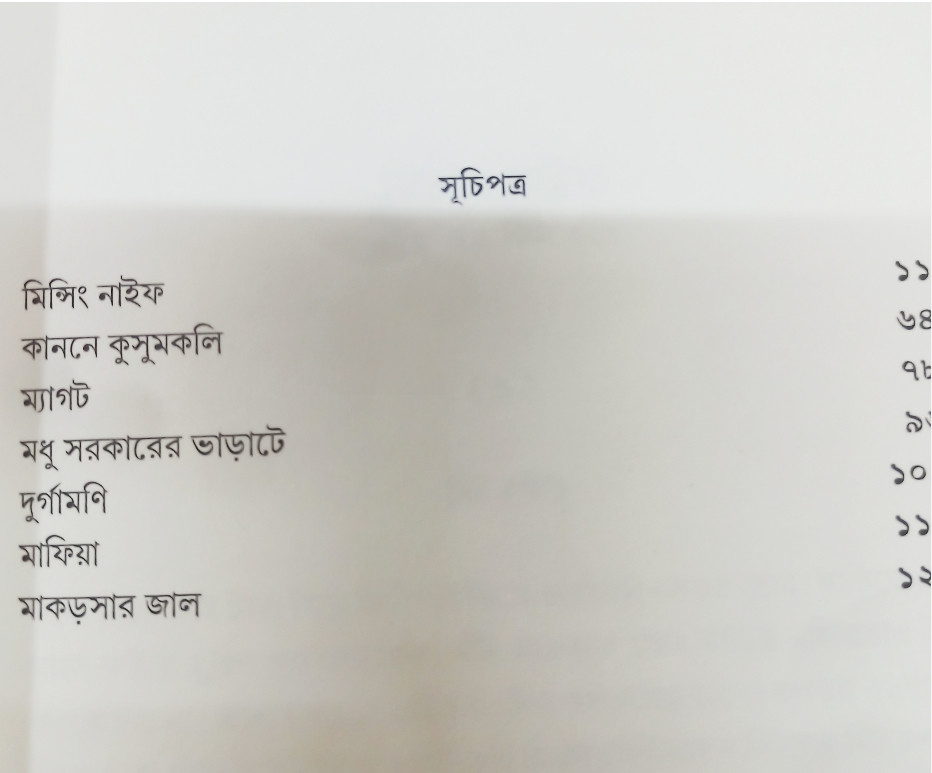 সূচিপত্র
মিন্সিং নাইফ ১১
কাননে কুসুমকলি ৬৪
ম্যাগট
মধু সরকারের ভাড়াটে
দুর্গামণি
মাফিয়া
মাকড়সার জাল